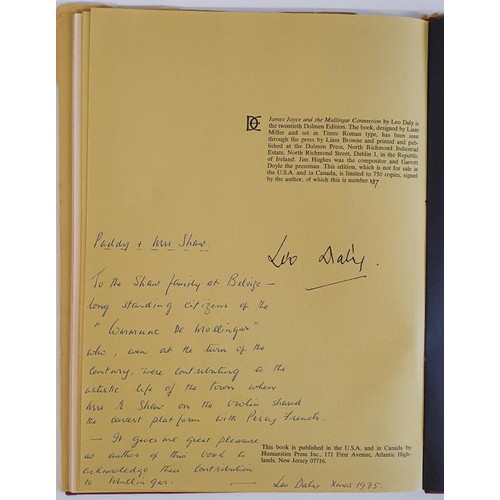 James Joyce and the Mullingar Connection by Leo Daly is
the twentieth Dolmen Edition. The book, designed by Liam
Miller and set in Times Roman type, has been seen
through the press by Liam Browne and printed and pub-
lished at the Dolmen Press, North Richmond Industrial
Estate, North Richmond Street, Dublin 1, in the Republic
of Ireland. Jim Hughes was the compositor and Garrett
Doyle the pressman. This edition, which is not for sale in
the U.S.A. and in Canada, is limited to 750 copies, signed
by the author, of which this is number
Leo Daly.
Paddy + Mrs Shaw.
To the Shaw family at Belvize —
long standing citizens of the
"Commune De Mollingar"
who, even at the turn of the
century, were contributing to the
artistic life of the town when
Mrs K Shaw on the violin shared
the concert platform with Percy French.
— It gives me great pleasure
as author of this book to
acknowledge their contribution
to Mullingar.
This book is published in the U.S.A. and in Canada by
Humanities Press Inc., 171 First Avenue, Atlantic High-
lands, New Jersey 07716.
— Leo Daly Xmas 1975.